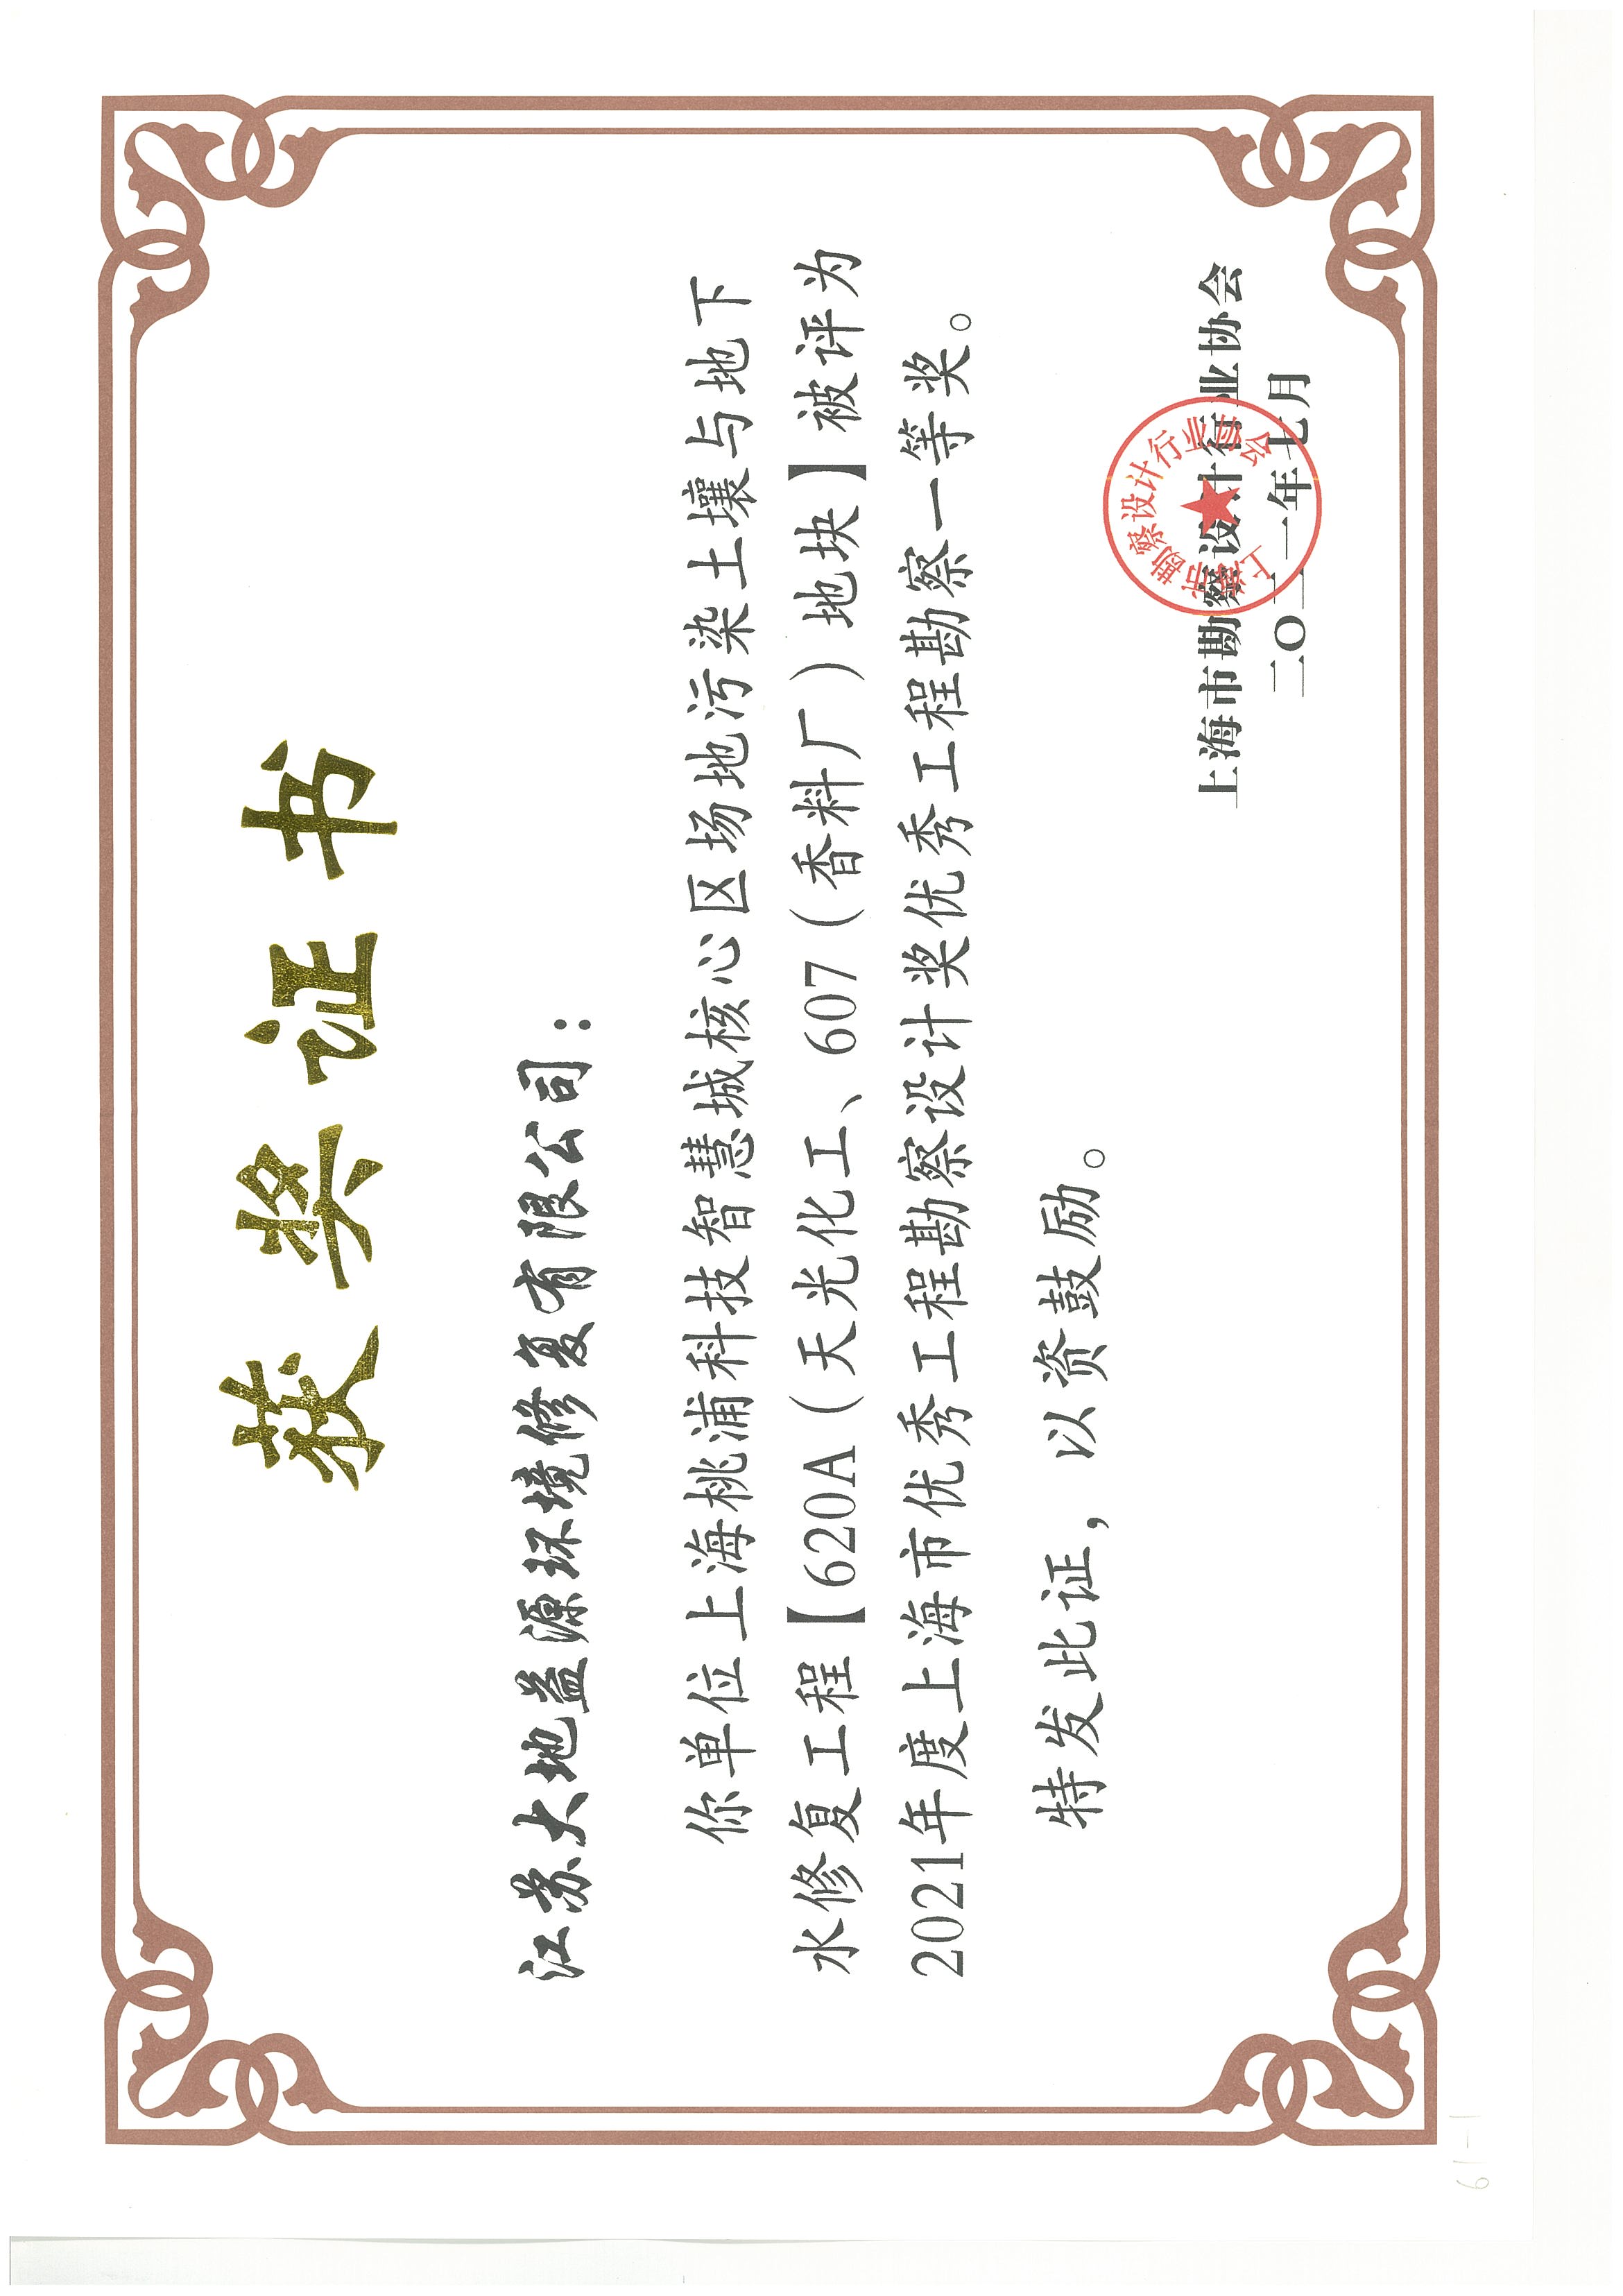 获奖证书
江苏大地益源环境修复有限公司：
你单位上海桃浦科技智慧城核心区场地污染土壤与地下
水修复工程【620A（天光化工、607（香料厂）地块】被评为
2021年度上海市优秀工程勘察设计奖优秀工程勘察一等奖。
特发此证，以资鼓励。
上海市勘察设计行业协会
二〇二一年七月
上海市勘察设计行业协会